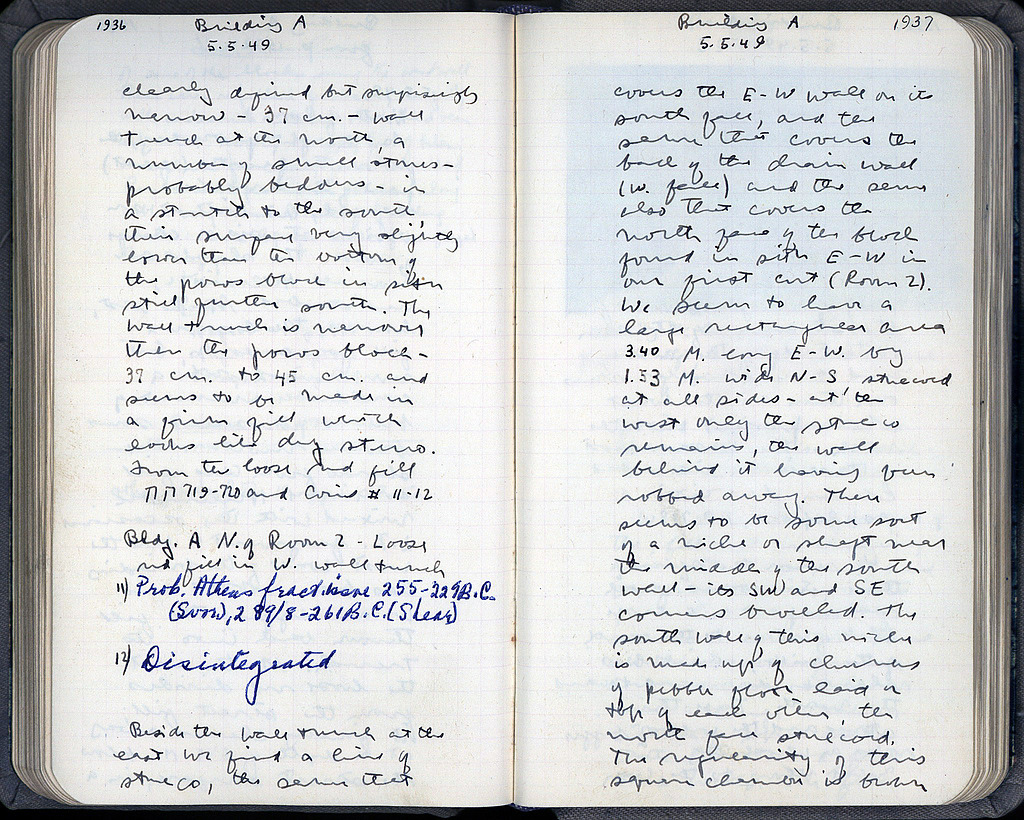 1936 Building A
5.5.49
clearly defined but surprisingly
narrow - 37 cm. - wall
trench at the north, a
number of small stones -
probably bedders - in
a stretch to the south,
their surface very slightly
lower than the bottom of
the poros block in situ
still further south. The
wall trench is narrower
than the poros block -
37 cm. to 45 cm. and
seems to be made in
a firm fill which
looks like dug stereo.
From the loose red fill
ΠΠ 719-720 and Coins # 11-12
Bldg. A N. of Room 2 - Loose
red fill in W. wall trench
11) Prob. Athens fract. issue 255-229 B.C.
(Svor.), 289/8-261 B.C. (Shear)
12) Disintegrated
Beside the wall trench at the
east we find a line of
stucco, the same that
Building A 1937
5.5.49
covers the E-W wall on its
south face, and the
same that covers the
back of the drain wall
(W. face) and the same
also that covers the
north face of the block
found in situ E-W in
our first cut (Room 2).
We seem to have a
large rectangular area
3.40 M. long E-W. by
1.53 M. wide N-S stuccoed
at all sides - at the
west only the stucco
remains, the wall
behind it having been
robbed away. There
seems to be some sort
of a niche or shaft near
the middle of the south
wall - its SW and SE
corners beveled. The
south wall of this niche
is made up of chunks
of pebble floor laid on
top of each other, the
north face stuccoed.
The regularity of this
square chamber is broken